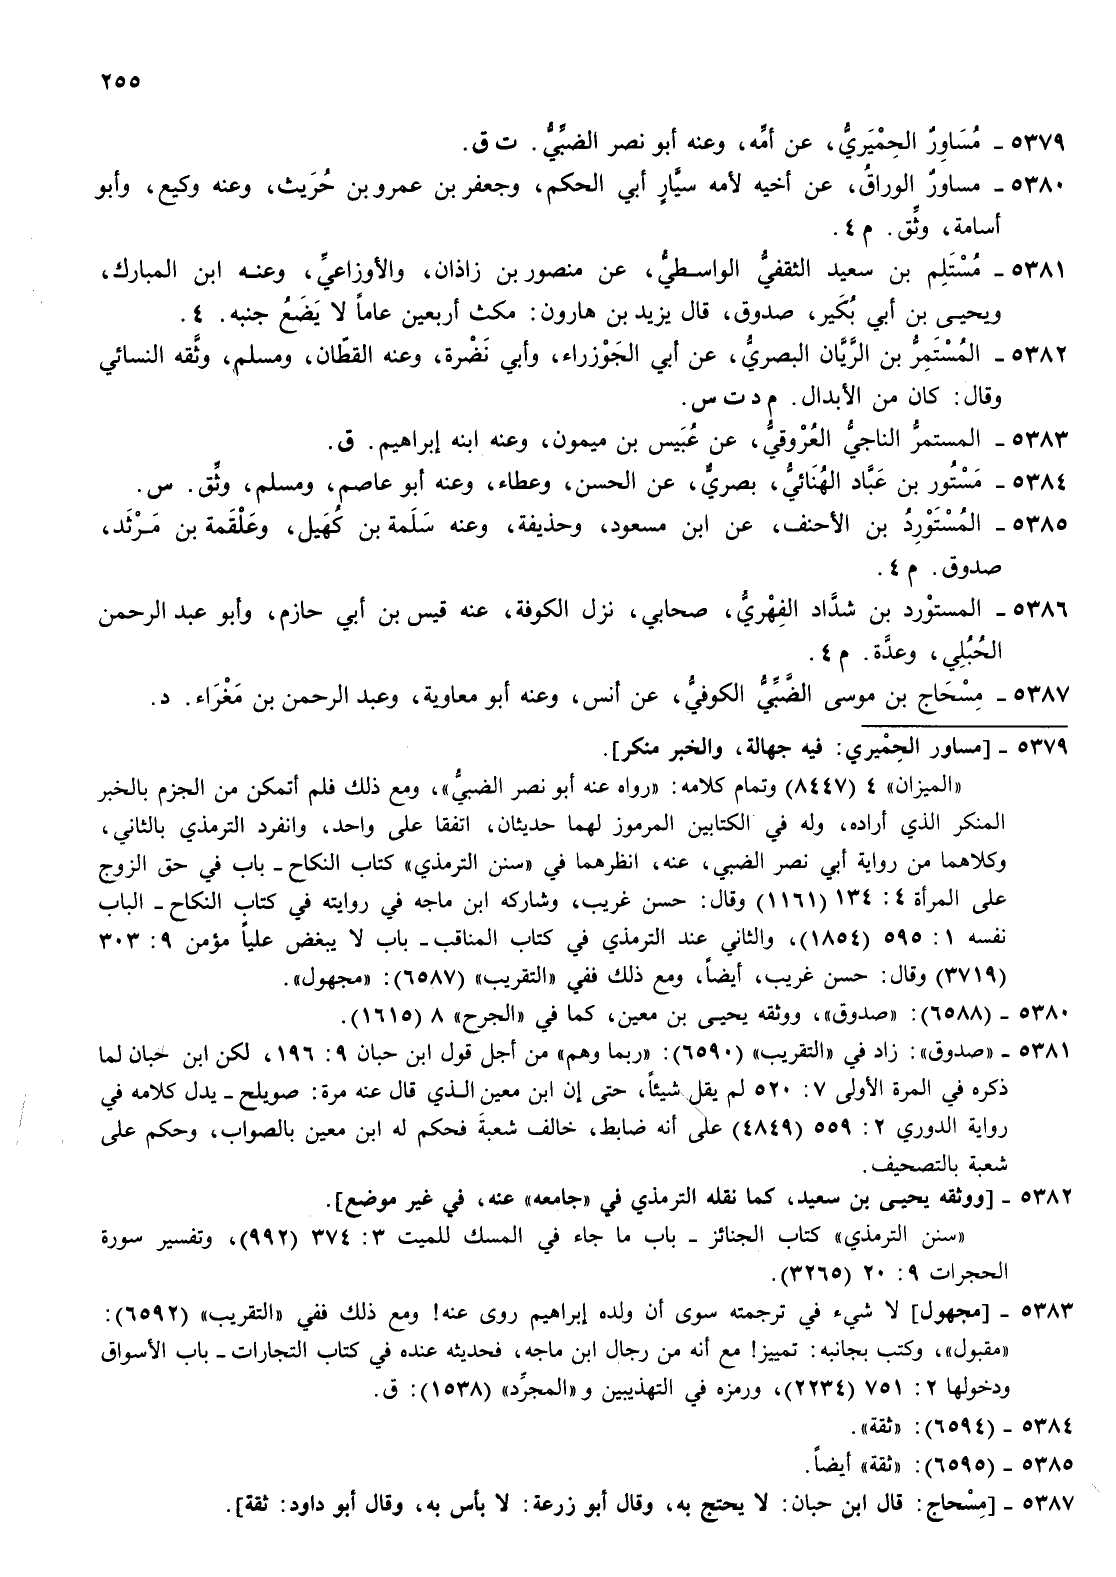 ٢٥٥
٥٣٧٩ ـ مُسَاوِرٌ الحِمْيَرِيُّ، عن أمِّه، وعنه أبو نصر الضبِّيُّ. ت ق.
٥٣٨٠ ـ مساورٌ الوراقُ، عن أخيه لأمه سيَّارٍ أبي الحكم، وجعفر بن عمرو بن حُرَيث، وعنه وكيع، وأبو
أسامة، وثِّق. م ٤.
٥٣٨١ ـ مُسْتَلِم بن سعيد الثقفيُّ الواسطيُّ، عن منصور بن زاذان، والأوزاعيِّ، وعنه ابن المبارك،
ويحيى بن أبي بُكَير، صدوق، قال يزيد بن هارون: مكث أربعين عاماً لا يَضَعُ جنبه. ٤.
٥٣٨٢ ـ المُسْتَمِرُّ بن الرَّيَّان البصريُّ، عن أبي الجَوْزراء، وأبي نَضْرة، وعنه القطّان، ومسلم، وثَّقه النسائي
وقال: كان من الأبدال. م د ت س.
٥٣٨٣ ـ المستمرُّ الناجيُّ العُرْوقيُّ، عن عُبَيس بن ميمون، وعنه ابنه إبراهيم. ق.
٥٣٨٤ ـ مَسْتُور بن عَبَّاد الهُنَائيُّ، بصريٌّ، عن الحسن، وعطاء، وعنه أبو عاصم، ومسلم، وثِّق. س.
٥٣٨٥ ـ المُسْتَوْرِدُ بن الأحنف، عن ابن مسعود، وحذيفة، وعنه سَلَمة بن كُهَيل، وعَلْقَمة بن مَرْثَد،
صدوق. م ٤.
٥٣٨٦ ـ المستوْرد بن شدَّاد الفِهْريُّ، صحابي، نزل الكوفة، عنه قيس بن أبي حازم، وأبو عبد الرحمن
الحُبُلي، وعدَّة. م ٤.
٥٣٨٧ ـ مِسْحَاج بن موسى الضَّبِّيُّ الكوفيُّ، عن أنس، وعنه أبو معاوية، وعبد الرحمن بن مَغْرَاء. د.
٥٣٧٩ ـ [مساور الحِمْيري: فيه جهالة، والخبر منكر].
«الميزان» ٤ (٨٤٤٧) وتمام كلامه: «رواه عنه أبو نصر الضبيُّ»، ومع ذلك فلم أتمكن من الجزم بالخبر
المنكر الذي أراده، وله في الكتابين المرموز لهما حديثان، اتفقا على واحد، وانفرد الترمذي بالثاني،
وكلاهما من رواية أبي نصر الضبي، عنه، انظرهما في «سنن الترمذي» كتاب النكاح ـ باب في حق الزوج
على المرأة ٤: ١٣٤ (١١٦١) وقال: حسن غريب، وشاركه ابن ماجه في روايته في كتاب النكاح ـ الباب
نفسه ١: ٥٩٥ (١٨٥٤)، والثاني عند الترمذي في كتاب المناقب ـ باب لا يبغض علياً مؤمن ٩: ٣٠٣
(٣٧١٩) وقال: حسن غريب، أيضاً، ومع ذلك ففي «التقريب» (٦٥٨٧): «مجهول».
٥٣٨٠ ـ (٦٥٨٨): «صدوق»، ووثقه يحيى بن معين، كما في «الجرح» ٨ (١٦١٥).
٥٣٨١ ـ «صدوق»: زاد في «التقريب» (٦٥٩٠): «ربما وهم» من أجل قول ابن حبان ٩: ١٩٦، لكن ابن حبان لما
ذكره في المرة الأولى ٧: ٥٢٠ لم يقل شيئاً، حتى إن ابن معين الذي قال عنه مرة: صويلح ـ يدل كلامه في
رواية الدوري ٢: ٥٥٩ (٤٨٤٩) على أنه ضابط، خالف شعبةَ فحكم له ابن معين بالصواب، وحكم على
شعبة بالتصحيف.
٥٣٨٢ ـ [ووثقه يحيى بن سعيد، كما نقله الترمذي في «جامعه» عنه، في غير موضع].
«سنن الترمذي» كتاب الجنائز ـ باب ما جاء في المسك للميت ٣: ٣٧٤ (٩٩٢)، وتفسير سورة
الحجرات ٩: ٢٠ (٣٢٦٥).
٥٣٨٣ ـ [مجهول] لا شيء في ترجمته سوى أن ولده إبراهيم روى عنه! ومع ذلك ففي «التقريب» (٦٥٩٢):
«مقبول»، وكتب بجانبه: تمييز! مع أنه من رجال ابن ماجه، فحديثه عنده في كتاب التجارات ـ باب الأسواق
ودخولها ٢: ٧٥١ (٢٢٣٤)، ورمزه في التهذيبين و «المجرِّد» (١٥٣٨): ق.
٥٣٨٤ ـ (٦٥٩٤): «ثقة».
٥٣٨٥ ـ (٦٥٩٥): «ثقة» أيضاً.
٥٣٨٧ ـ [مِسْحاج: قال ابن حبان: لا يحتج به، وقال أبو زرعة: لا بأس به، وقال أبو داود: ثقة].